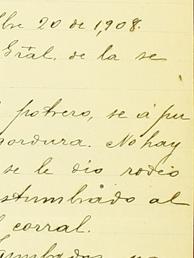 bre 20 de 1908.
Gral. de la se
potrero, se á pu
gordura. No hay
se le dio rodeo
stumbrado al
corral.